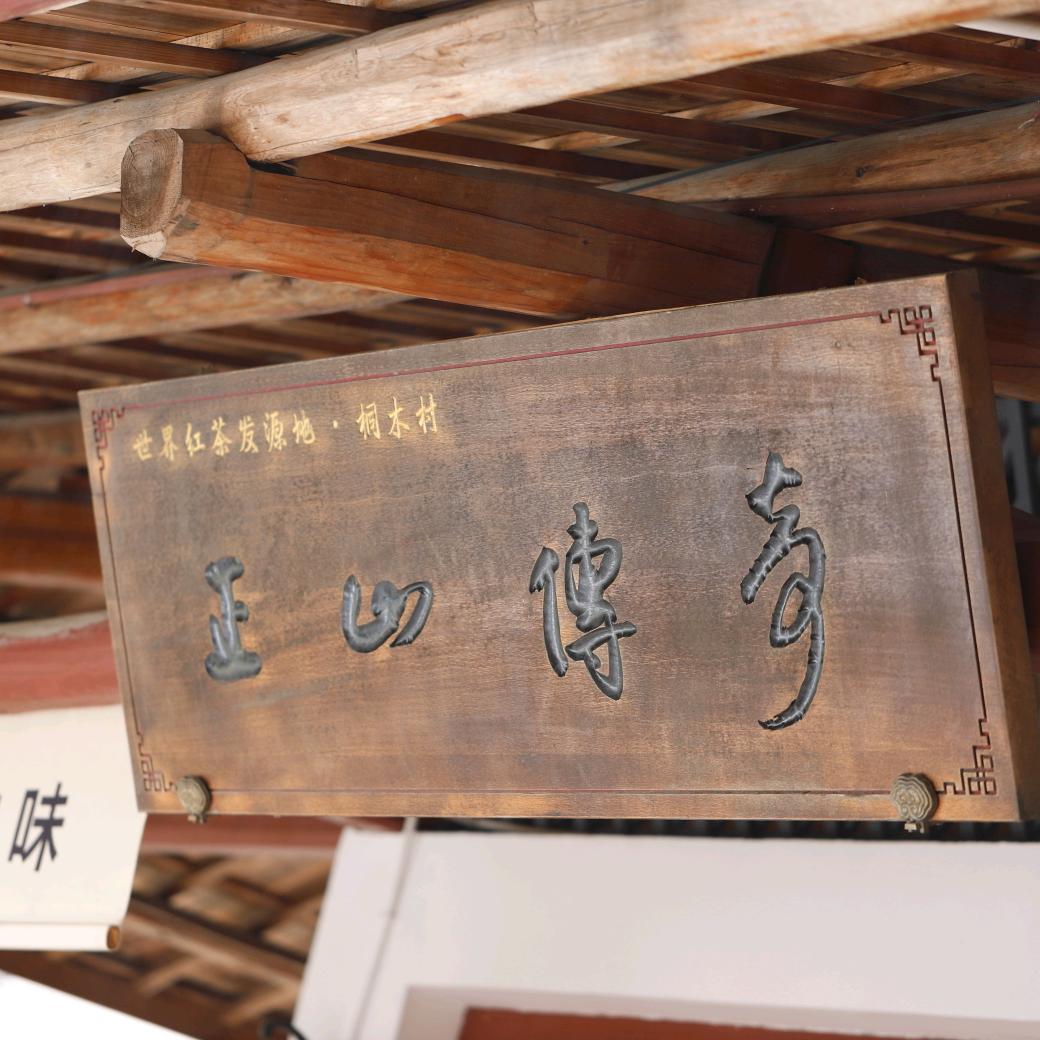 世界红茶发源地·桐木村
正山傳奇
味